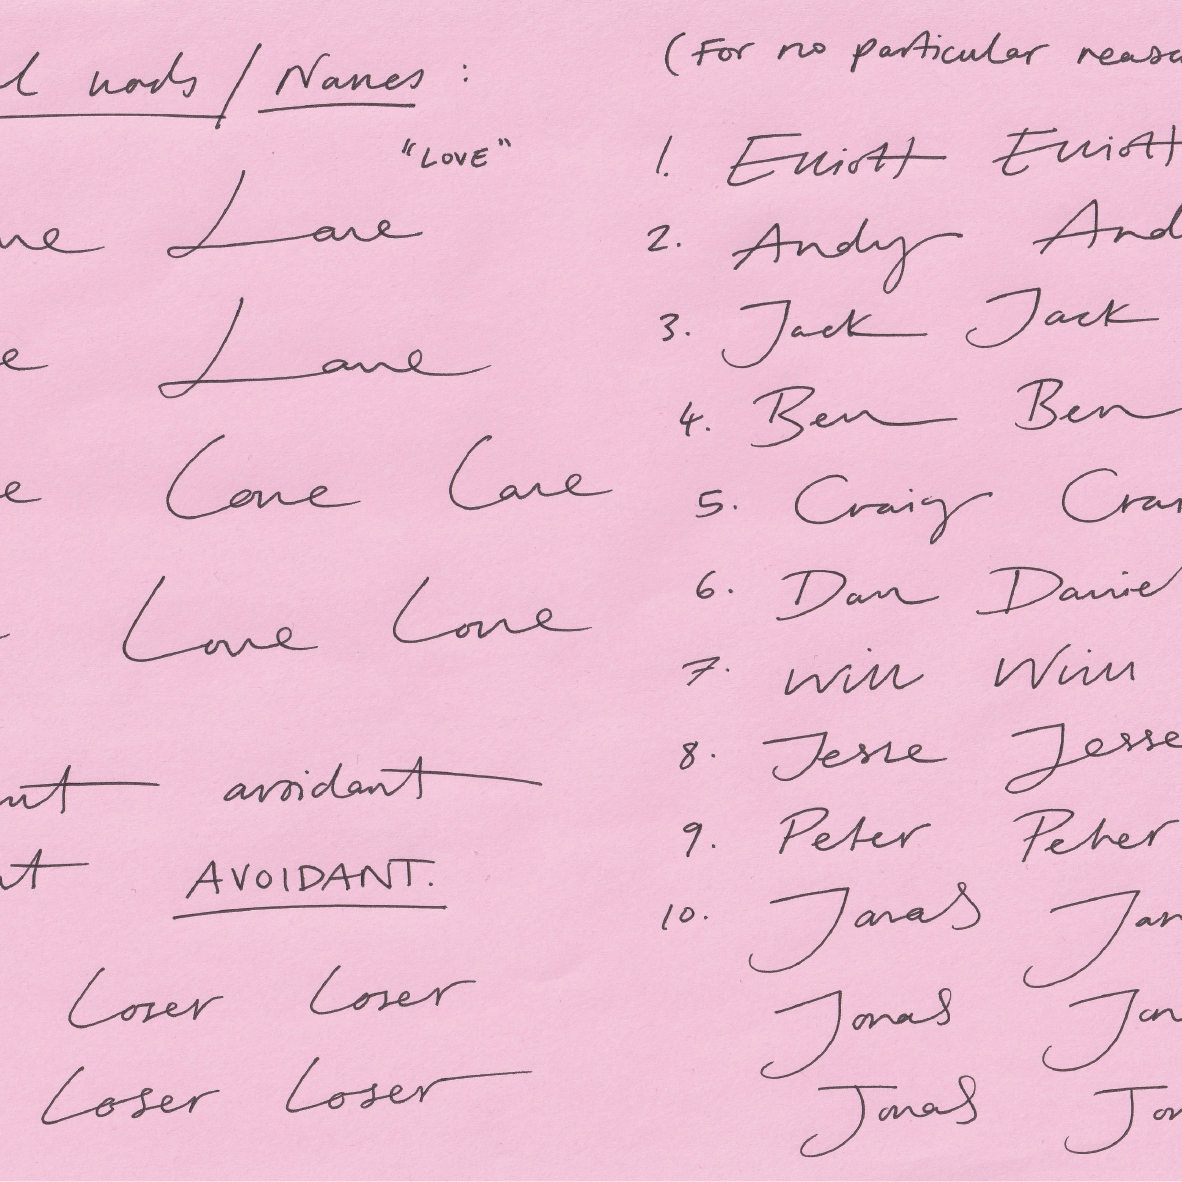 words / Names :
"LOVE"
Love
Love
Love Love
Love Love
avoidant
AVOIDANT.
Loser Loser
Loser Loser
(For no particular
1. Elliott Elliott
2. Andy
3. Jack Jack
4. Ben Ben
5. Craig
6. Dan
7. Will Will
8. Jesse Jesse
9. Peter Peter
10. Jonas
Jonas
Jonas